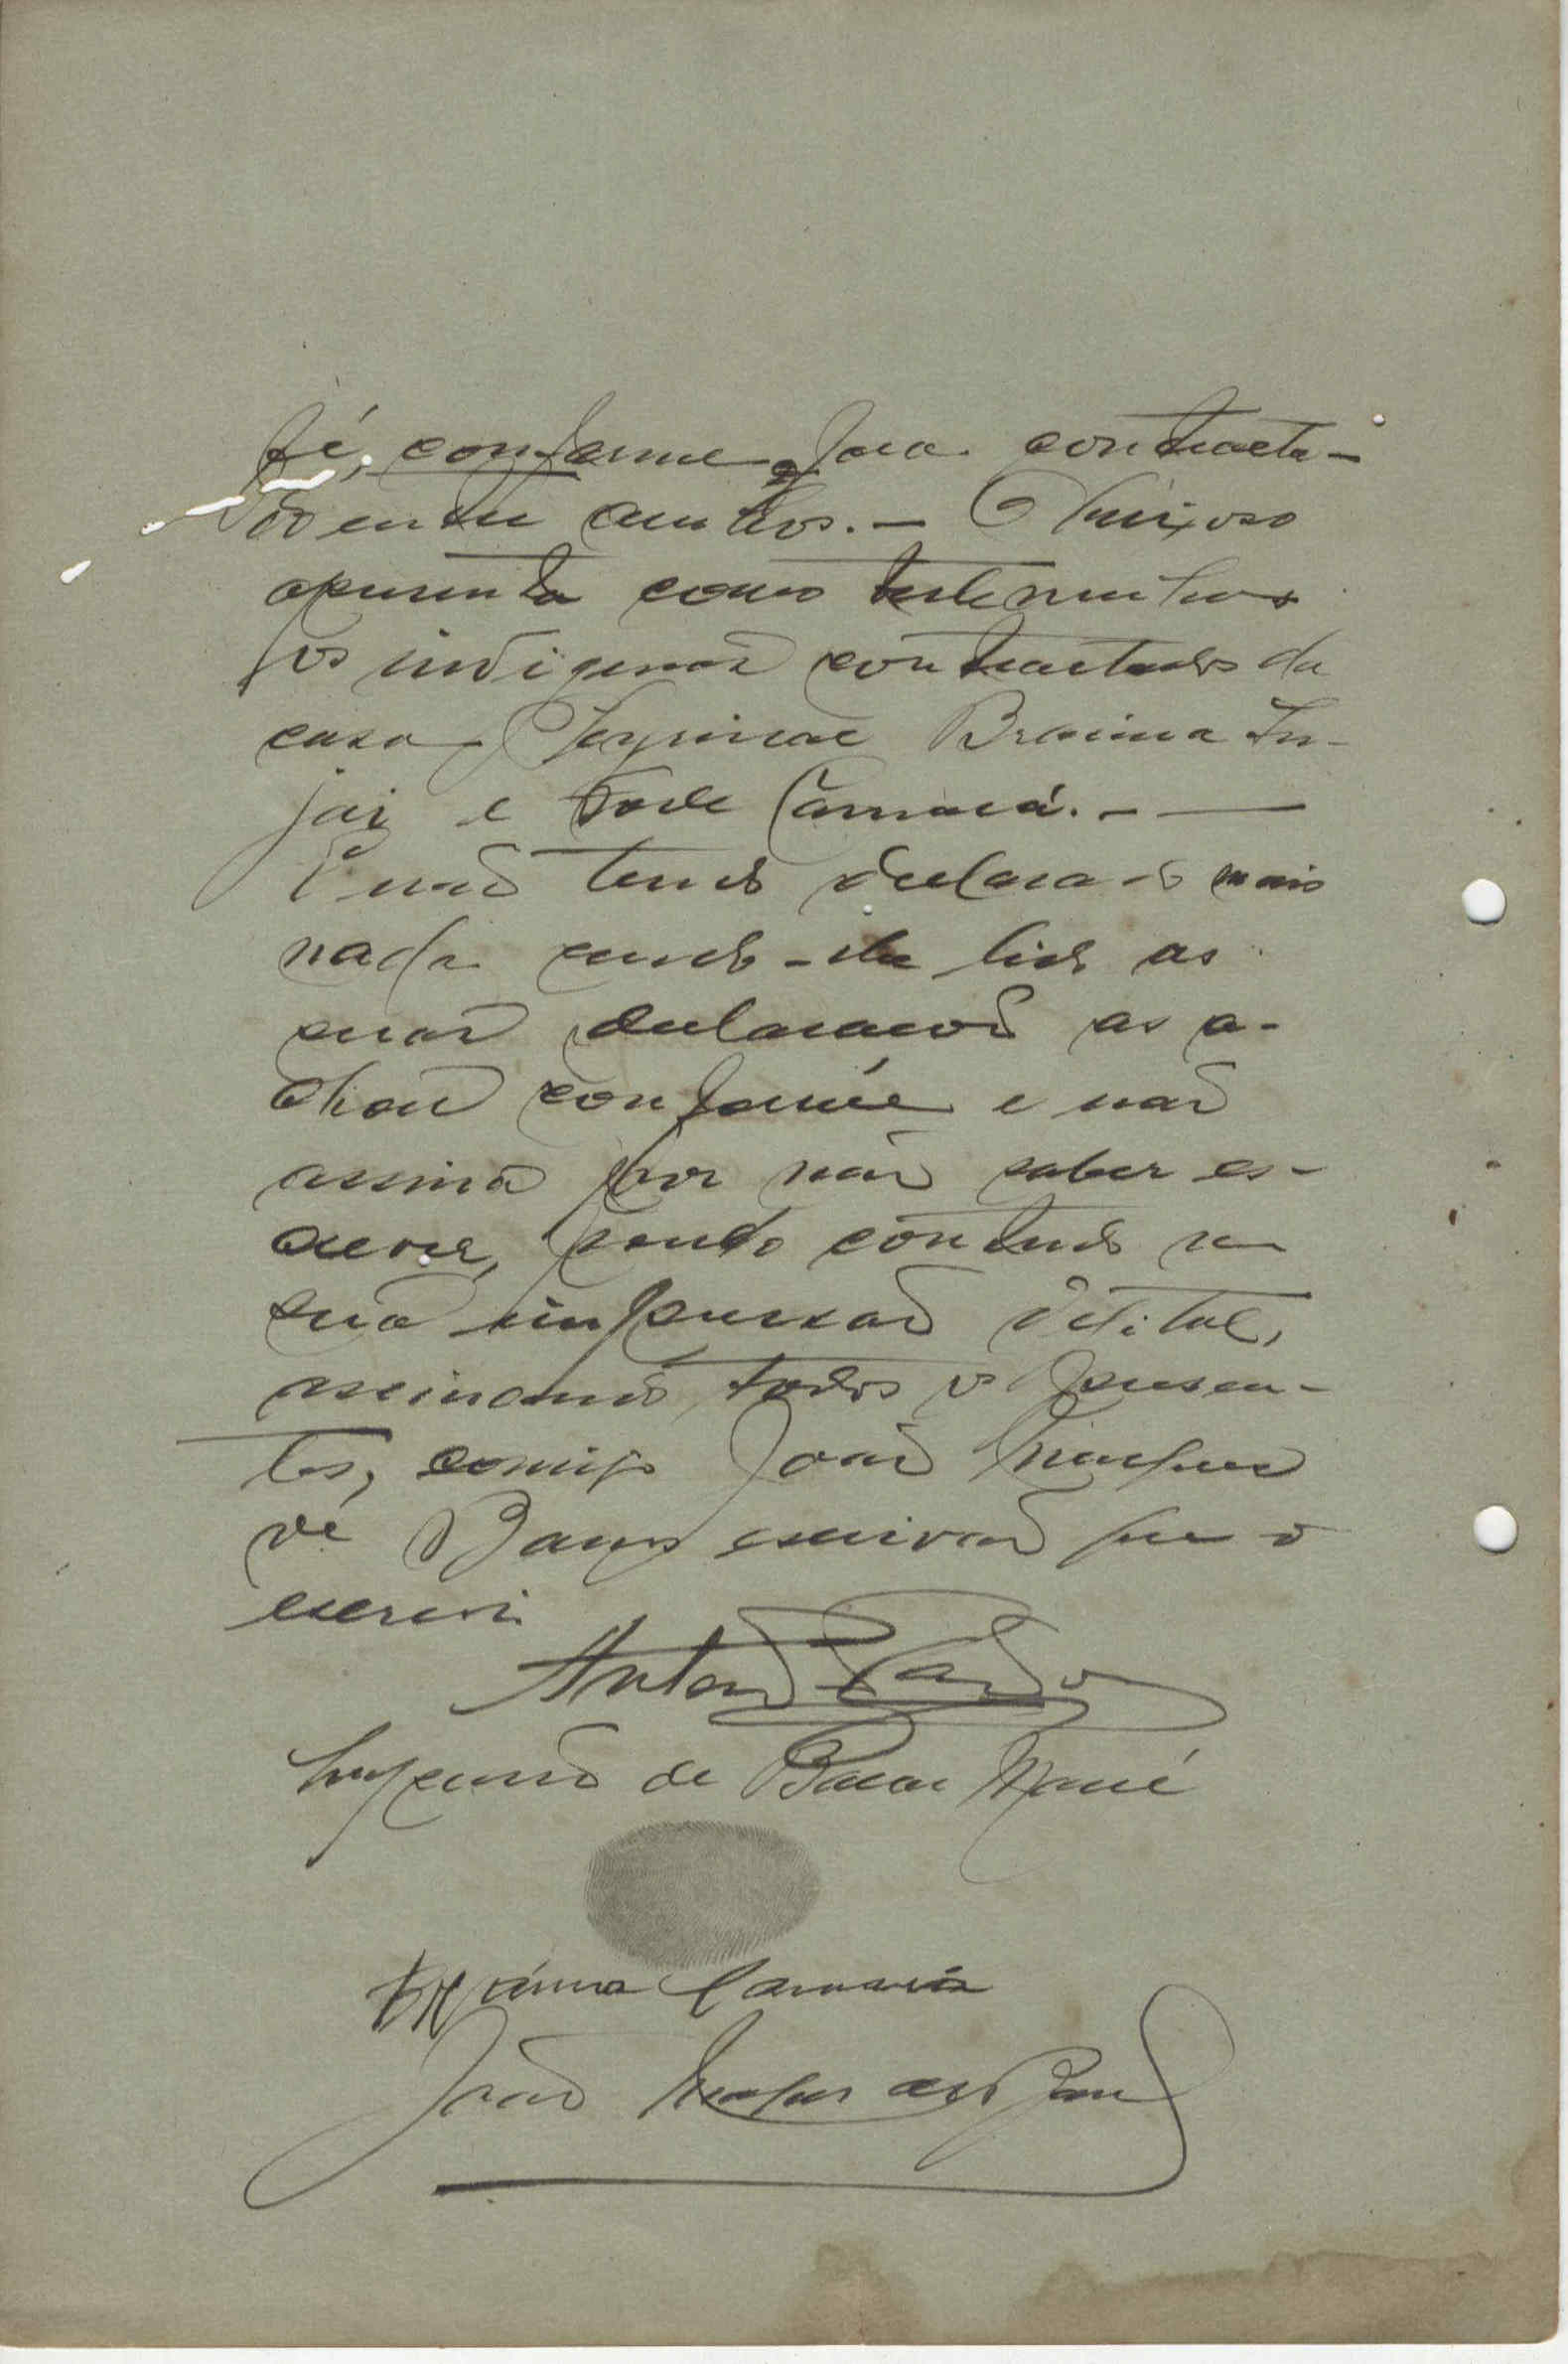 fé, conforme fora contracta-
do entre ambos. — O queixoso
apresenta como testemunhas
os indigenas contractados da
casa, Braima In-
jai e Sode Camará. —
E não tendo declarado mais
nada sendo-lhe lido as
suas declaracoes as a-
chou conforme e não
assina por não saber es-
crever, pondo contudo a
sua impressão digital,
assinando todos os presen-
tes, comigo João Marques
de Barros escrivão que o
escrevi.
Antonio Pardo
Impressão de Bacar Mané
Braima Camará
João Marques de Barros